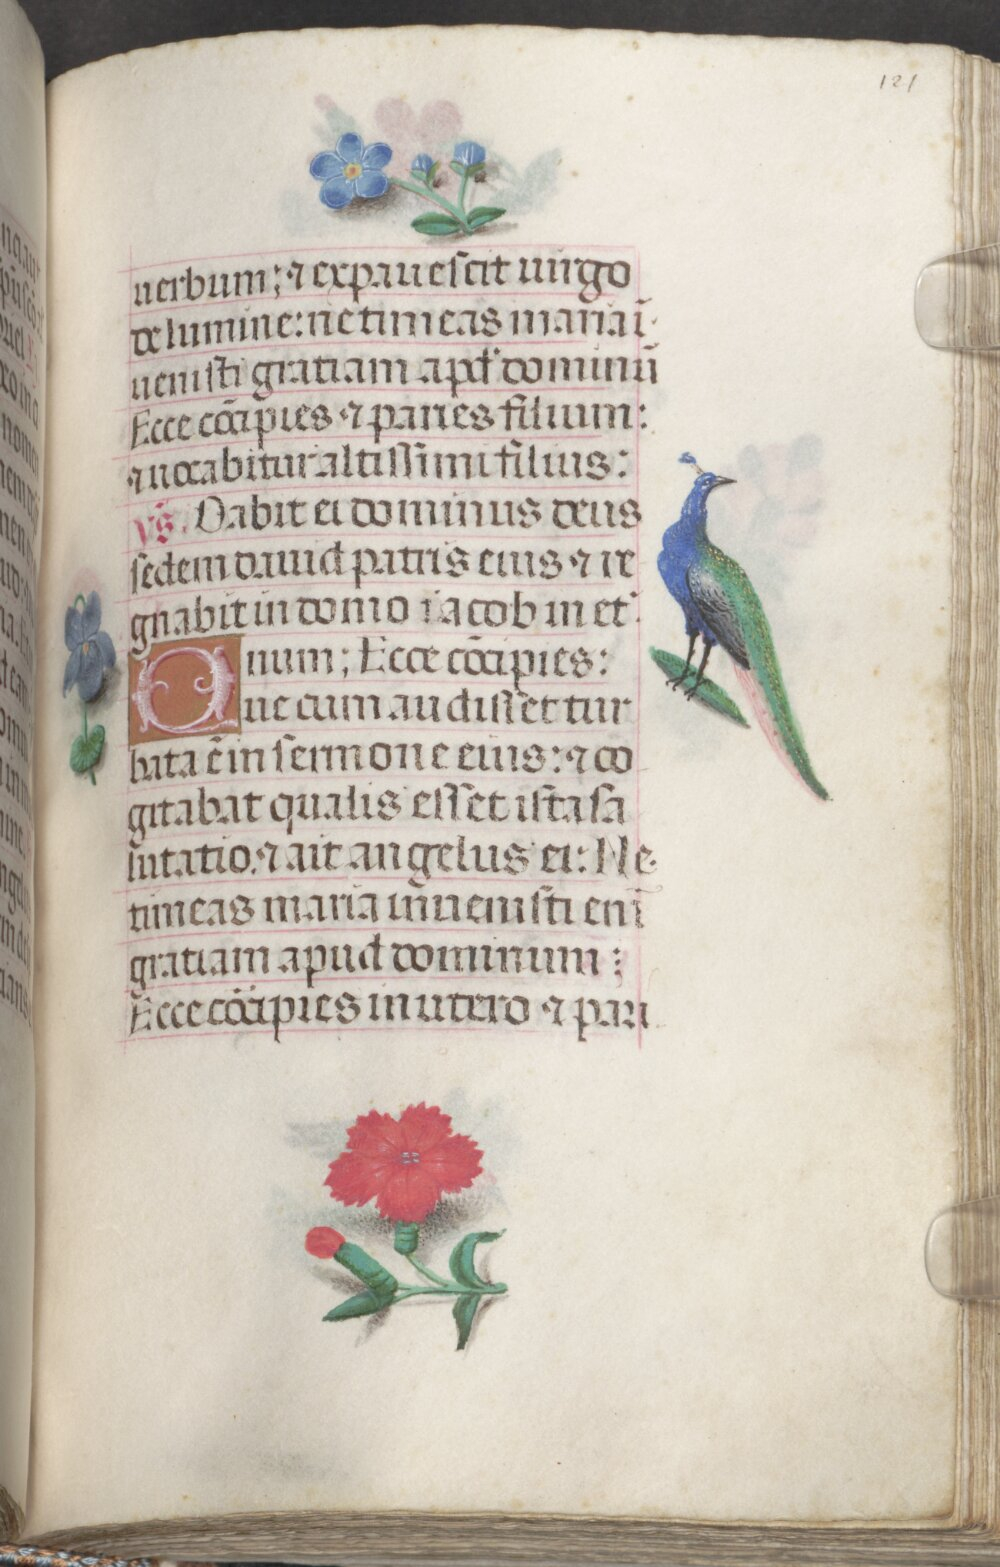 121
uerbum; ⁊ expauescit uirgo
de lumine: ne timeas maria ī
uenisti gratiam apd' dominū
Ecce cōcipies ⁊ paries filium:
⁊ uocabitur altissimi filius:
vs. Dabit ei dominus deus
sedem dauid patris eius ⁊ re
gnabit in domo iacob in et
num; Ecce cōcipies:
Que cum audisset tur
bata ē in sermone eius: ⁊ co
gitabat qualis esset ista sa
lutatio. ⁊ ait angelus ei: Ne
timeas maria inuenisti enī
gratiam apud dominum;
Ecce cōcipies in utero ⁊ pari